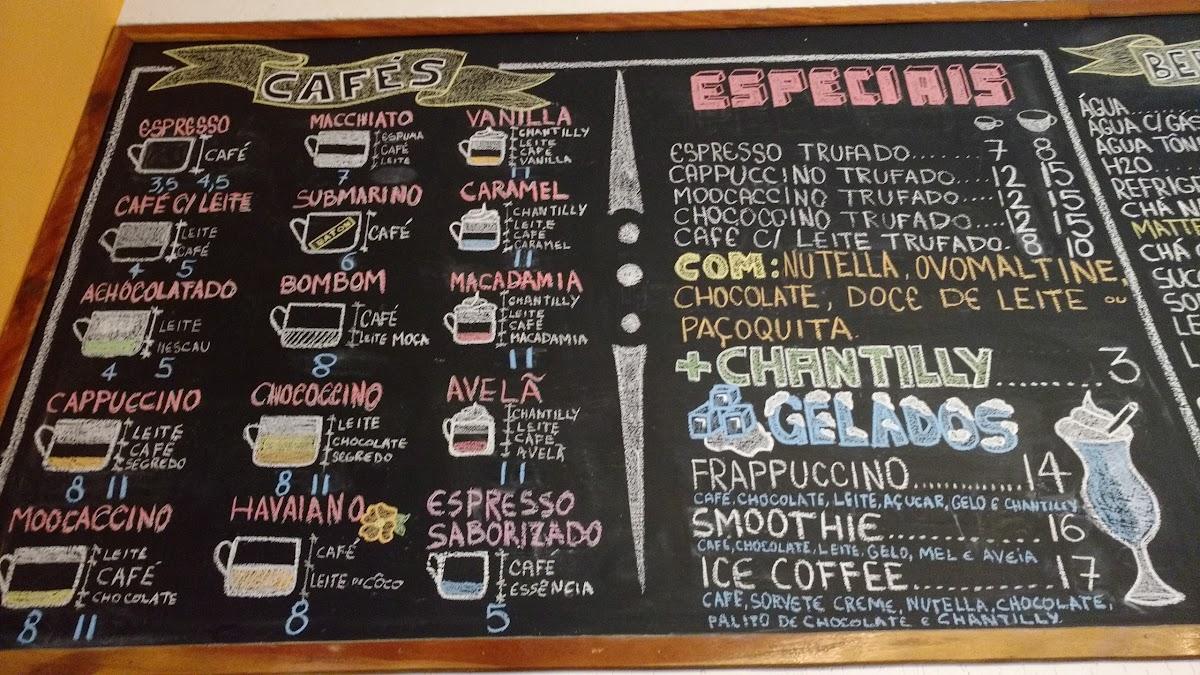 CAFÉS
ESPRESSO
CAFÉ
3,5 4,5
CAFÉ C/ LEITE
LEITE
CAFÉ
4 5
ACHOCOLATADO
LEITE
NESCAU
4 5
CAPPUCCINO
LEITE
CAFÉ
SEGREDO
8 11
MOOCACCINO
LEITE
CAFÉ
CHOCOLATE
8 11
MACCHIATO
ESPUMA
CAFÉ
LEITE
7
SUBMARINO
BATON
CAFÉ
6
BOMBOM
CAFÉ
LEITE MOÇA
8
CHOCOCCINO
LEITE
CHOCOLATE
SEGREDO
8 11
HAVAIANO
CAFÉ
LEITE DE CÔCO
8
VANILLA
CHANTILLY
LEITE
CAFÉ
VANILLA
11
CARAMEL
CHANTILLY
LEITE
CAFÉ
CARAMEL
11
MACADAMIA
CHANTILLY
LEITE
CAFÉ
MACADAMIA
11
AVELÃ
CHANTILLY
LEITE
CAFÉ
AVELÃ
11
ESPRESSO
SABORIZADO
CAFÉ
ESSÊNCIA
5
ESPECIAIS
ESPRESSO TRUFADO.......7 8
CAPPUCCINO TRUFADO....12 15
MOOCACCINO TRUFADO...12 15
CHOCOCCINO TRUFADO...12 15
CAFÉ C/ LEITE TRUFADO. 8 10
COM: NUTELLA, OVOMALTINE,
CHOCOLATE, DOCE DE LEITE OU
PAÇOQUITA.
+ CHANTILLY..........3
GELADOS
FRAPPUCCINO.............14
CAFÉ, CHOCOLATE, LEITE, AÇUCAR, GELO E CHANTILLY
SMOOTHIE...................16
CAFÉ, CHOCOLATE, LEITE, GELO, MEL E AVEIA
ICE COFFEE................17
CAFÉ, SORVETE CREME, NUTELLA, CHOCOLATE,
PALITO DE CHOCOLATE E CHANTILLY.
BE
ÁGUA
ÁGUA C/ GÁS
ÁGUA TÔN
H2O
REFRIG
CHÁ N
MATTE
CHÁ
SUC
SO
LE
L